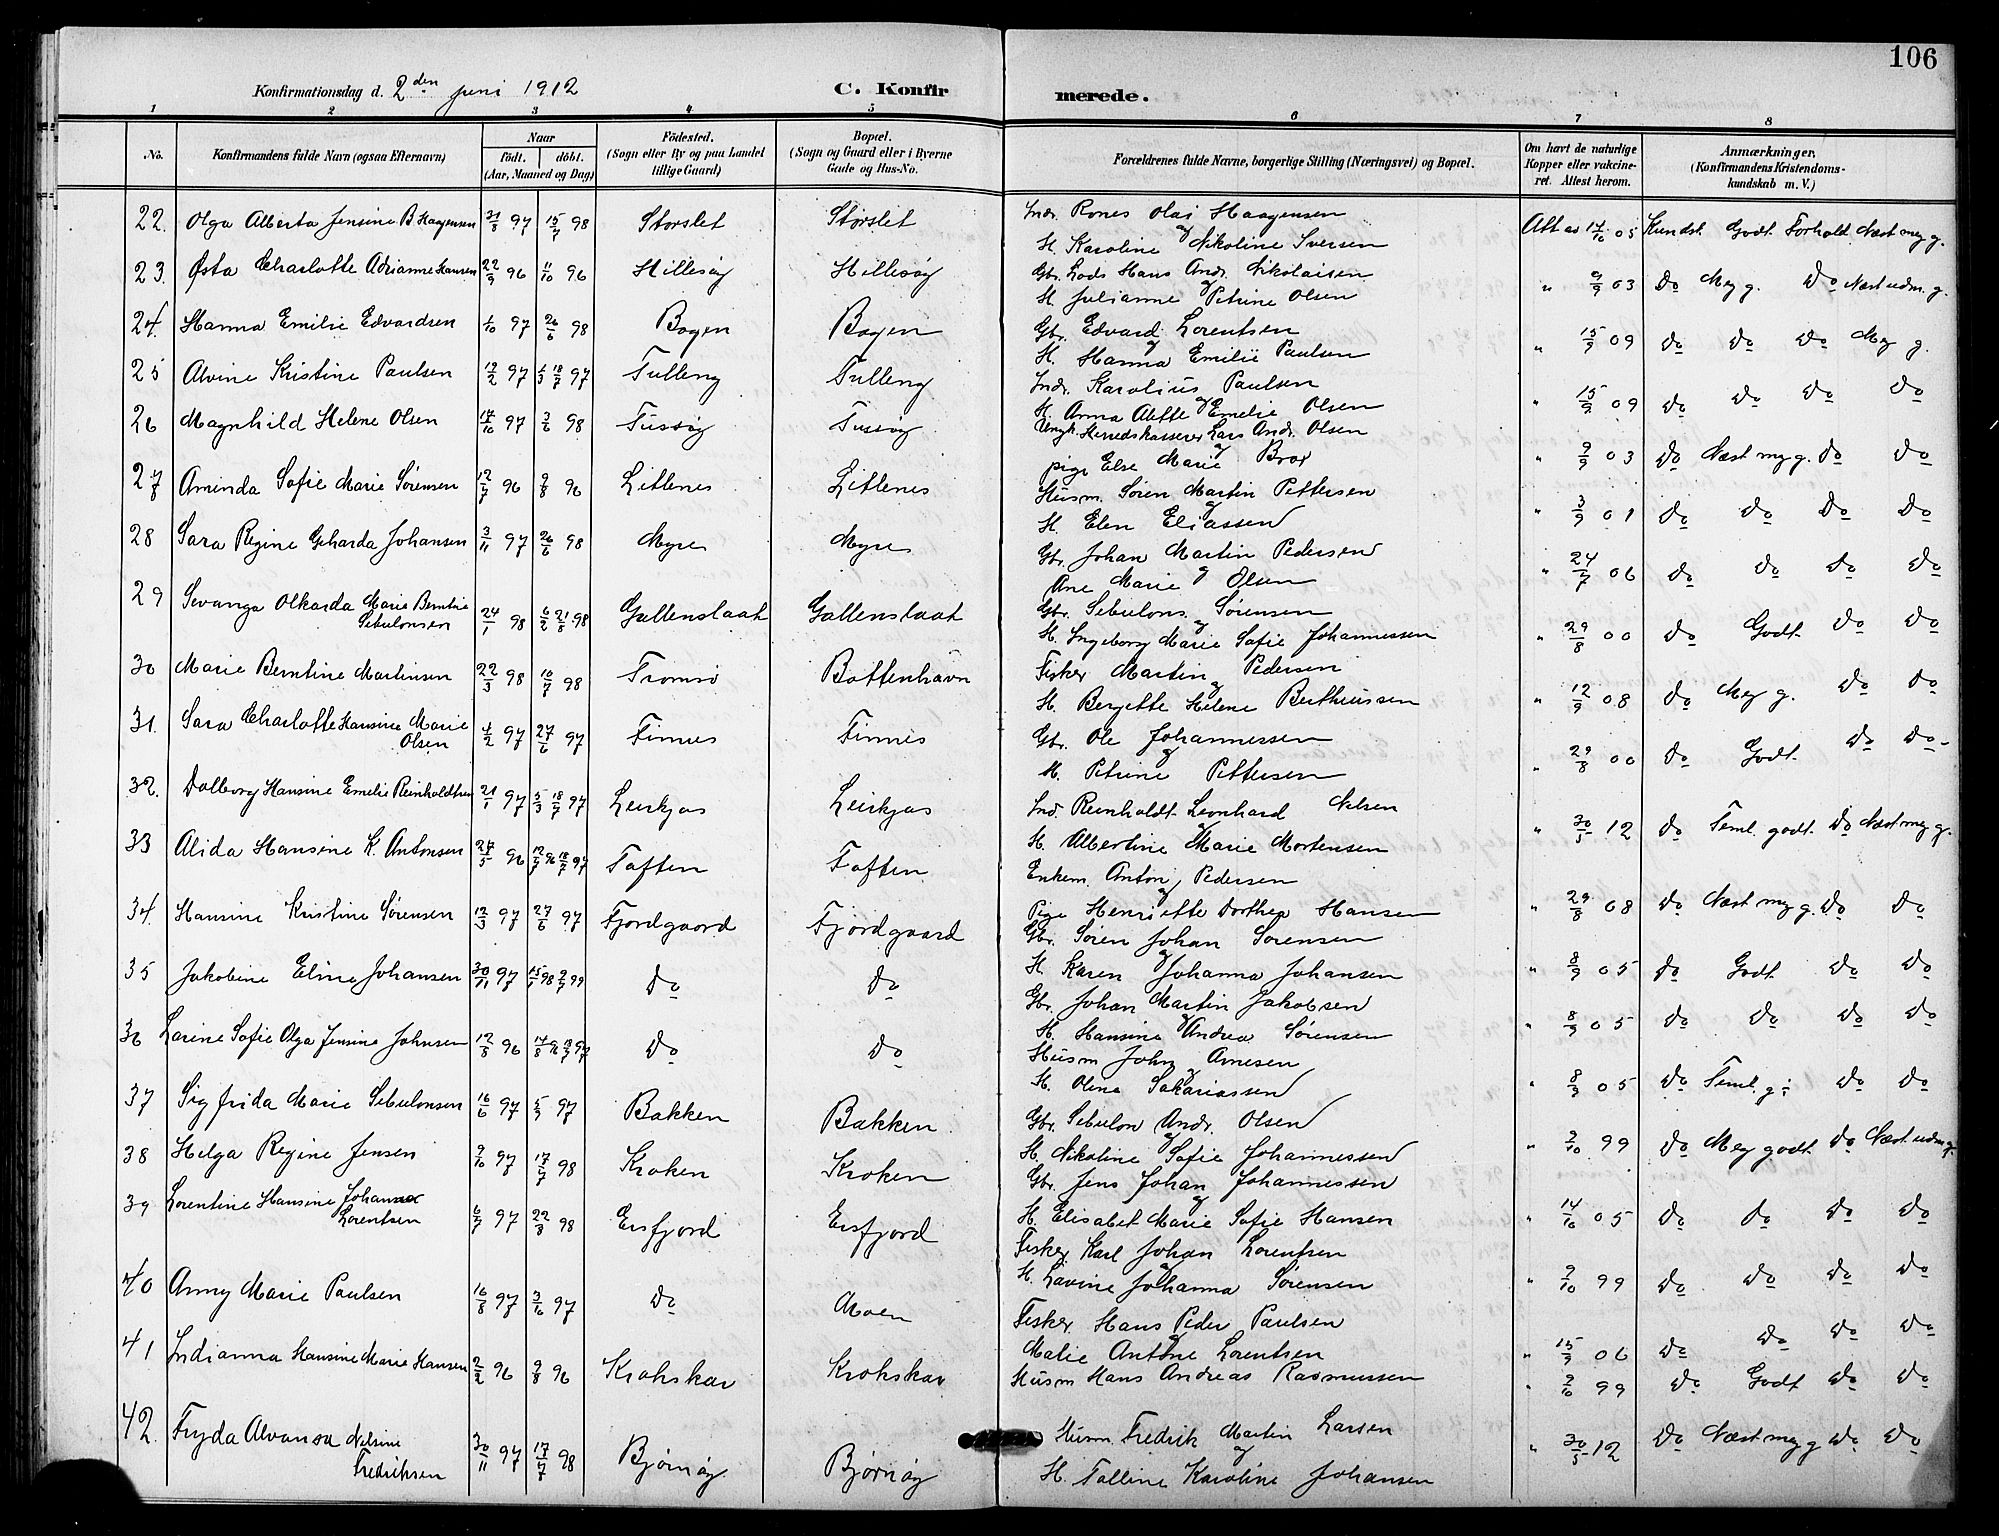 106
Konfirmationsdag d. 2den juni 1912 C. Konfirmerede.
1 2 3 4 5 6 7 8
No. Konfirmandens fulde Navn (ogsaa Efternavn) Naar födt. döbt. (Aar, Maaned og Dag) Födested. (Sogn eller By og paa Landet tillige Gaard) Bopæl. (Sogn og Gaard eller i Byerne Gade og Hus-No. Forældrenes fulde Navne, borgerlige Stilling (Næringsvei) og Bopæl. Om havt de naturlige Kopper eller vakcineret. Attest herom. Anmærkninger. (Konfirmandens Kristendomskundskab m. V.)
22. Olga Alberta Jensine B. Haagensen 31/8 97 15/7 98 Storslet Storslet Indr. Rones Olai Haagensen og H. Karoline Nikoline Iversen Att av 14/10 05 Kundsk. Godt. Forhold. Næst meg g.
23. Østa Charlotte Adrianne Hansen 22/9 96 11/10 96 Hillesøy Hillesøy Gbr. Lods Hans Andr. Nikolaisen og H. Julianne Petrine Olsen " 9/9 03 Do Meg g. Do Næst udm. g.
24. Hanna Emilie Edvardsen 1/10 97 26/6 98 Bogen Bogen Gbr. Edvard Lorentsen og H. Hanna Emilie Paulsen " 15/9 09 Do Do Do Meg g.
25 Alvine Kristine Paulsen 12/2 97 1/3 18/7 97 Tulleng Tulleng Indr. Karolius Paulsen og H. Anna Alette Emelie Olsen " 15/9 09 Do Do Do Do
26 Magnhild Helene Olsen 14/10 97 3/6 98 Tussøy Tussøy Ungk. Herredskasserer Lars Andr. Olsen og pige Else Marie Brox " 9/9 03 Do Næst meg g. Do Do
27 Aminda Sofie Marie Sørensen 12/7 96 9/8 96 Litlenes Litlenes Husm. Søren Martin Pettersen og H. Elen Eliassen " 3/9 01 Do Do Do Do
28 Sara Regine Geharda Johansen 3/11 97 26/6 98 Myre Myre Gbr. Johan Martin Pedersen og Ane Marie Olsen " 24/7 06 Do Do Do Do
29 Sevanga Olkarda Marie Berntine Sebulonsen 24/1 98 6/2 21/8 98 Gallenslaat Gallenslaat Gbr. Sebulons. Sørensen og H. Ingeborg Marie Sofie Johannessen " 29/8 00 Do Godt. Do Do
30 Marie Berntine Martinsen 22/3 98 10/7 98 Tromsø Bottenhavn Fisker Martin Pedersen og H. Bergette Helene Bertheussen " 12/9 08 Do Meg g. Do Do
31. Sara Charlotte Hansine Marie Olsen 4/2 97 27/6 97 Finnes Finnes Gbr. Ole Johannessen og H. Petrine Pettersen " 29/8 00 Do Godt. Do Do
32. Dalborg Hansine Emelie Reinholdtsen 21/1 97 5/3 18/7 97 Leirkjos Leirkjos Ind. Reinholdt Leonhard Nilsen og H. Albertine Marie Mortensen " 30/5 12 Do Teml. godt. Do Næst meg g.
33 Alida Hansine K. Antonsen 24/5 96 12/7 96 18/7 97 Toften Toften Enkem. Anton Pedersen og Pige Henriette Dorthea Hansen " 29/8 08 Do Næst meg g. Do Do
34. Hansine Kristine Sørensen 12/3 97 27/6 97 Fjordgaard Fjordgaard Gbr. Søren Johan Sørensen og H. Karen Johanna Johansen " 8/9 05 Do Godt Do Do
35 Jakobine Eline Johansen 30/11 97 15/1 98 2/7 99 Do Do Gbr. Johan Martin Jakobsen og H. Hansina Andrea Sørensen " 8/9 05 Do Do Do Do
36 Larine Sofie Olga Jensine Johnsen 12/8 96 14/8 96 18/7 97 Do Do Husm John Arnesen og H. Olena Sakariassen " 8/9 05 Do Teml. g. Do Do
37 Sigfrida Marie Sebulonsen 16/6 97 5/9 97 Bakken Bakken Gbr. Sebulon Andr. Olsen og H. Nikoline Sofie Johannessen " 2/10 99 Do Meg godt Do Næst udm g.
38 Helga Regine Jensen 9/10 97 17/7 98 Kroken Kroken Gbr. Jens Johan Johannessen og H. Elisabet Marie Sofie Hansen " 14/10 05 Do Do Do Do
39 Lorentine Hansine Johanna Lorentsen 6/7 97 22/3 98 Ersfjord Ersfjord Fisker Karl Johan Lorentsen og H. Lavine Johanna Sørensen " 2/10 99 Do Do Do Do
40 Anny Marie Paulsen 16/8 97 3/10 97 Do Moen Fisker Hans Peder Paulsen og Malie Antone Lorentsen " 15/9 06 Do Do Do Do
41 Indianna Hansine Marie Hansen 2/2 96 9/8 96 Krokskar Krokskar Husm Hans Andreas Rasmussen " 2/10 99 Do Godt Do Do
42. Fryda Alvansa Nelsine Fredriksen 30/11 97 17/7 98 Bjørnøy Bjørnøy Husm. Fredrik Martin Larsen og H. Talline Karoline Johansen " 30/5 12 Do Næst meg g Do Do